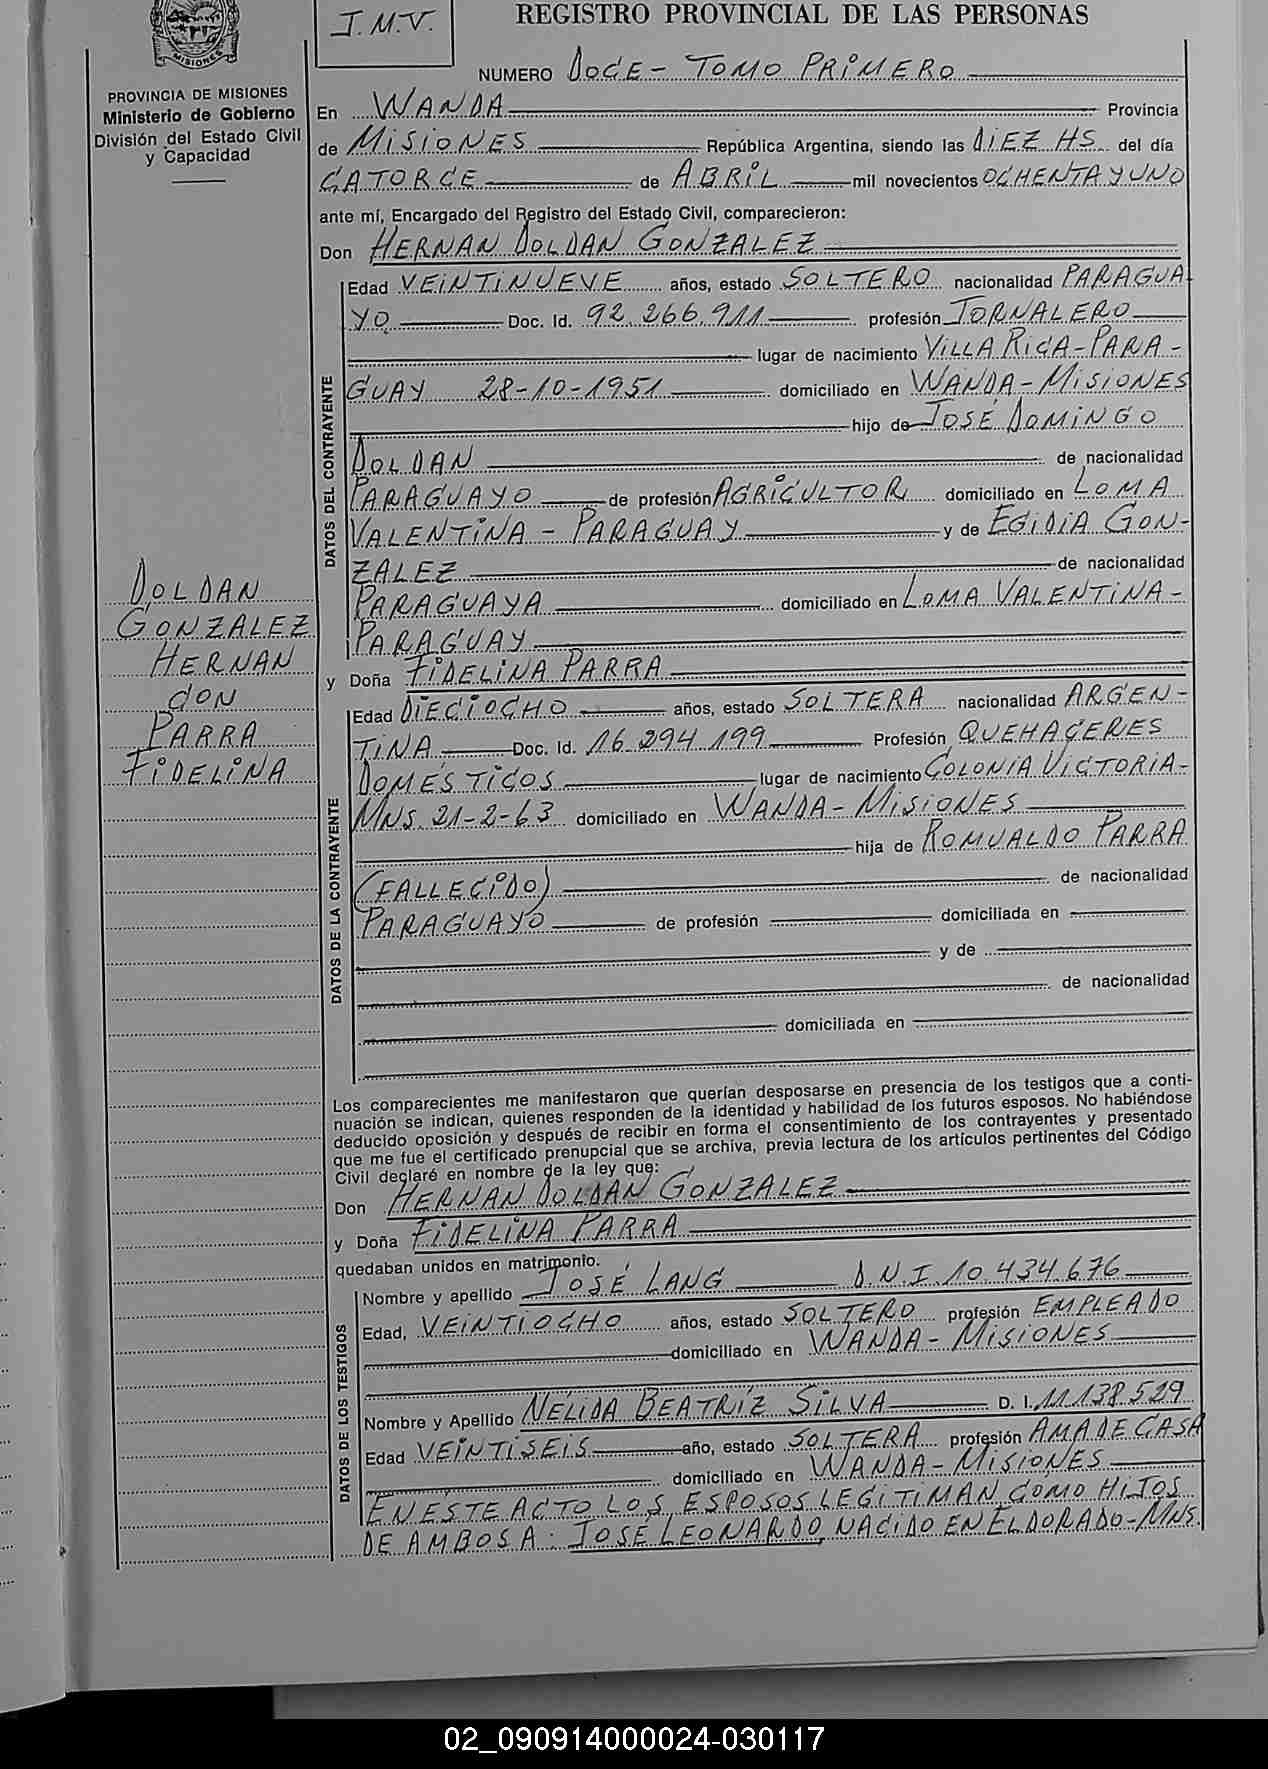 MISIONES
J.M.V.
REGISTRO PROVINCIAL DE LAS PERSONAS
NUMERO DOCE - TOMO PRIMERO
PROVINCIA DE MISIONES
Ministerio de Gobierno
División del Estado Civil
y Capacidad
En WANDA Provincia
de MISIONES República Argentina, siendo las DIEZ HS. del día
CATORCE de ABRIL mil novecientos OCHENTA Y UNO
ante mí, Encargado del Registro del Estado Civil, comparecieron:
Don HERNAN DOLDAN GONZALEZ
DATOS DEL CONTRAYENTE
Edad VEINTINUEVE años, estado SOLTERO nacionalidad PARAGUA
YO Doc. Id. 92.266.911 profesión JORNALERO
lugar de nacimiento VILLA RICA - PARA -
GUAY 28-10-1951 domiciliado en WANDA - MISIONES
hijo de JOSÉ DOMINGO
DOLDAN de nacionalidad
PARAGUAYO de profesión AGRICULTOR domiciliado en LOMA
VALENTINA - PARAGUAY y de EGIDIA GON-
ZALEZ de nacionalidad
PARAGUAYA domiciliado en LOMA VALENTINA -
PARAGUAY
DOLDAN
GONZALEZ
HERNAN
CON
PARRA
FIDELINA
y Doña FIDELINA PARRA
DATOS DE LA CONTRAYENTE
Edad DIECIOCHO años, estado SOLTERA nacionalidad ARGEN-
TINA Doc. Id. 16.294.199 Profesión QUEHACERES
DOMÉSTICOS lugar de nacimiento COLONIA VICTORIA -
MNS. 21-2-63 domiciliado en WANDA - MISIONES
hija de ROMUALDO PARRA
(FALLECIDO) de nacionalidad
PARAGUAYO de profesión domiciliada en
y de
de nacionalidad
domiciliada en
Los comparecientes me manifestaron que querían desposarse en presencia de los testigos que a conti-
nuación se indican, quienes responden de la identidad y habilidad de los futuros esposos. No habiéndose
deducido oposición y después de recibir en forma el consentimiento de los contrayentes y presentado
que me fue el certificado prenupcial que se archiva, previa lectura de los artículos pertinentes del Código
Civil declaré en nombre de la ley que:
Don HERNAN DOLDAN GONZALEZ
y Doña FIDELINA PARRA
quedaban unidos en matrimonio.
DATOS DE LOS TESTIGOS
Nombre y apellido JOSÉ LANG D.N.I. 10.434.676
Edad, VEINTIOCHO años, estado SOLTERO profesión EMPLEADO
domiciliado en WANDA - MISIONES
Nombre y Apellido NELIDA BEATRÍZ SILVA D. I. 11.138.529
Edad VEINTISEIS año, estado SOLTERA profesión AMA DE CASA
domiciliado en WANDA - MISIONES
EN ESTE ACTO LOS ESPOSOS LEGITIMAN COMO HIJOS
DE AMBOS A: JOSÉ LEONARDO, NACIDO EN ELDORADO - MNS.
02_090914000024-030117